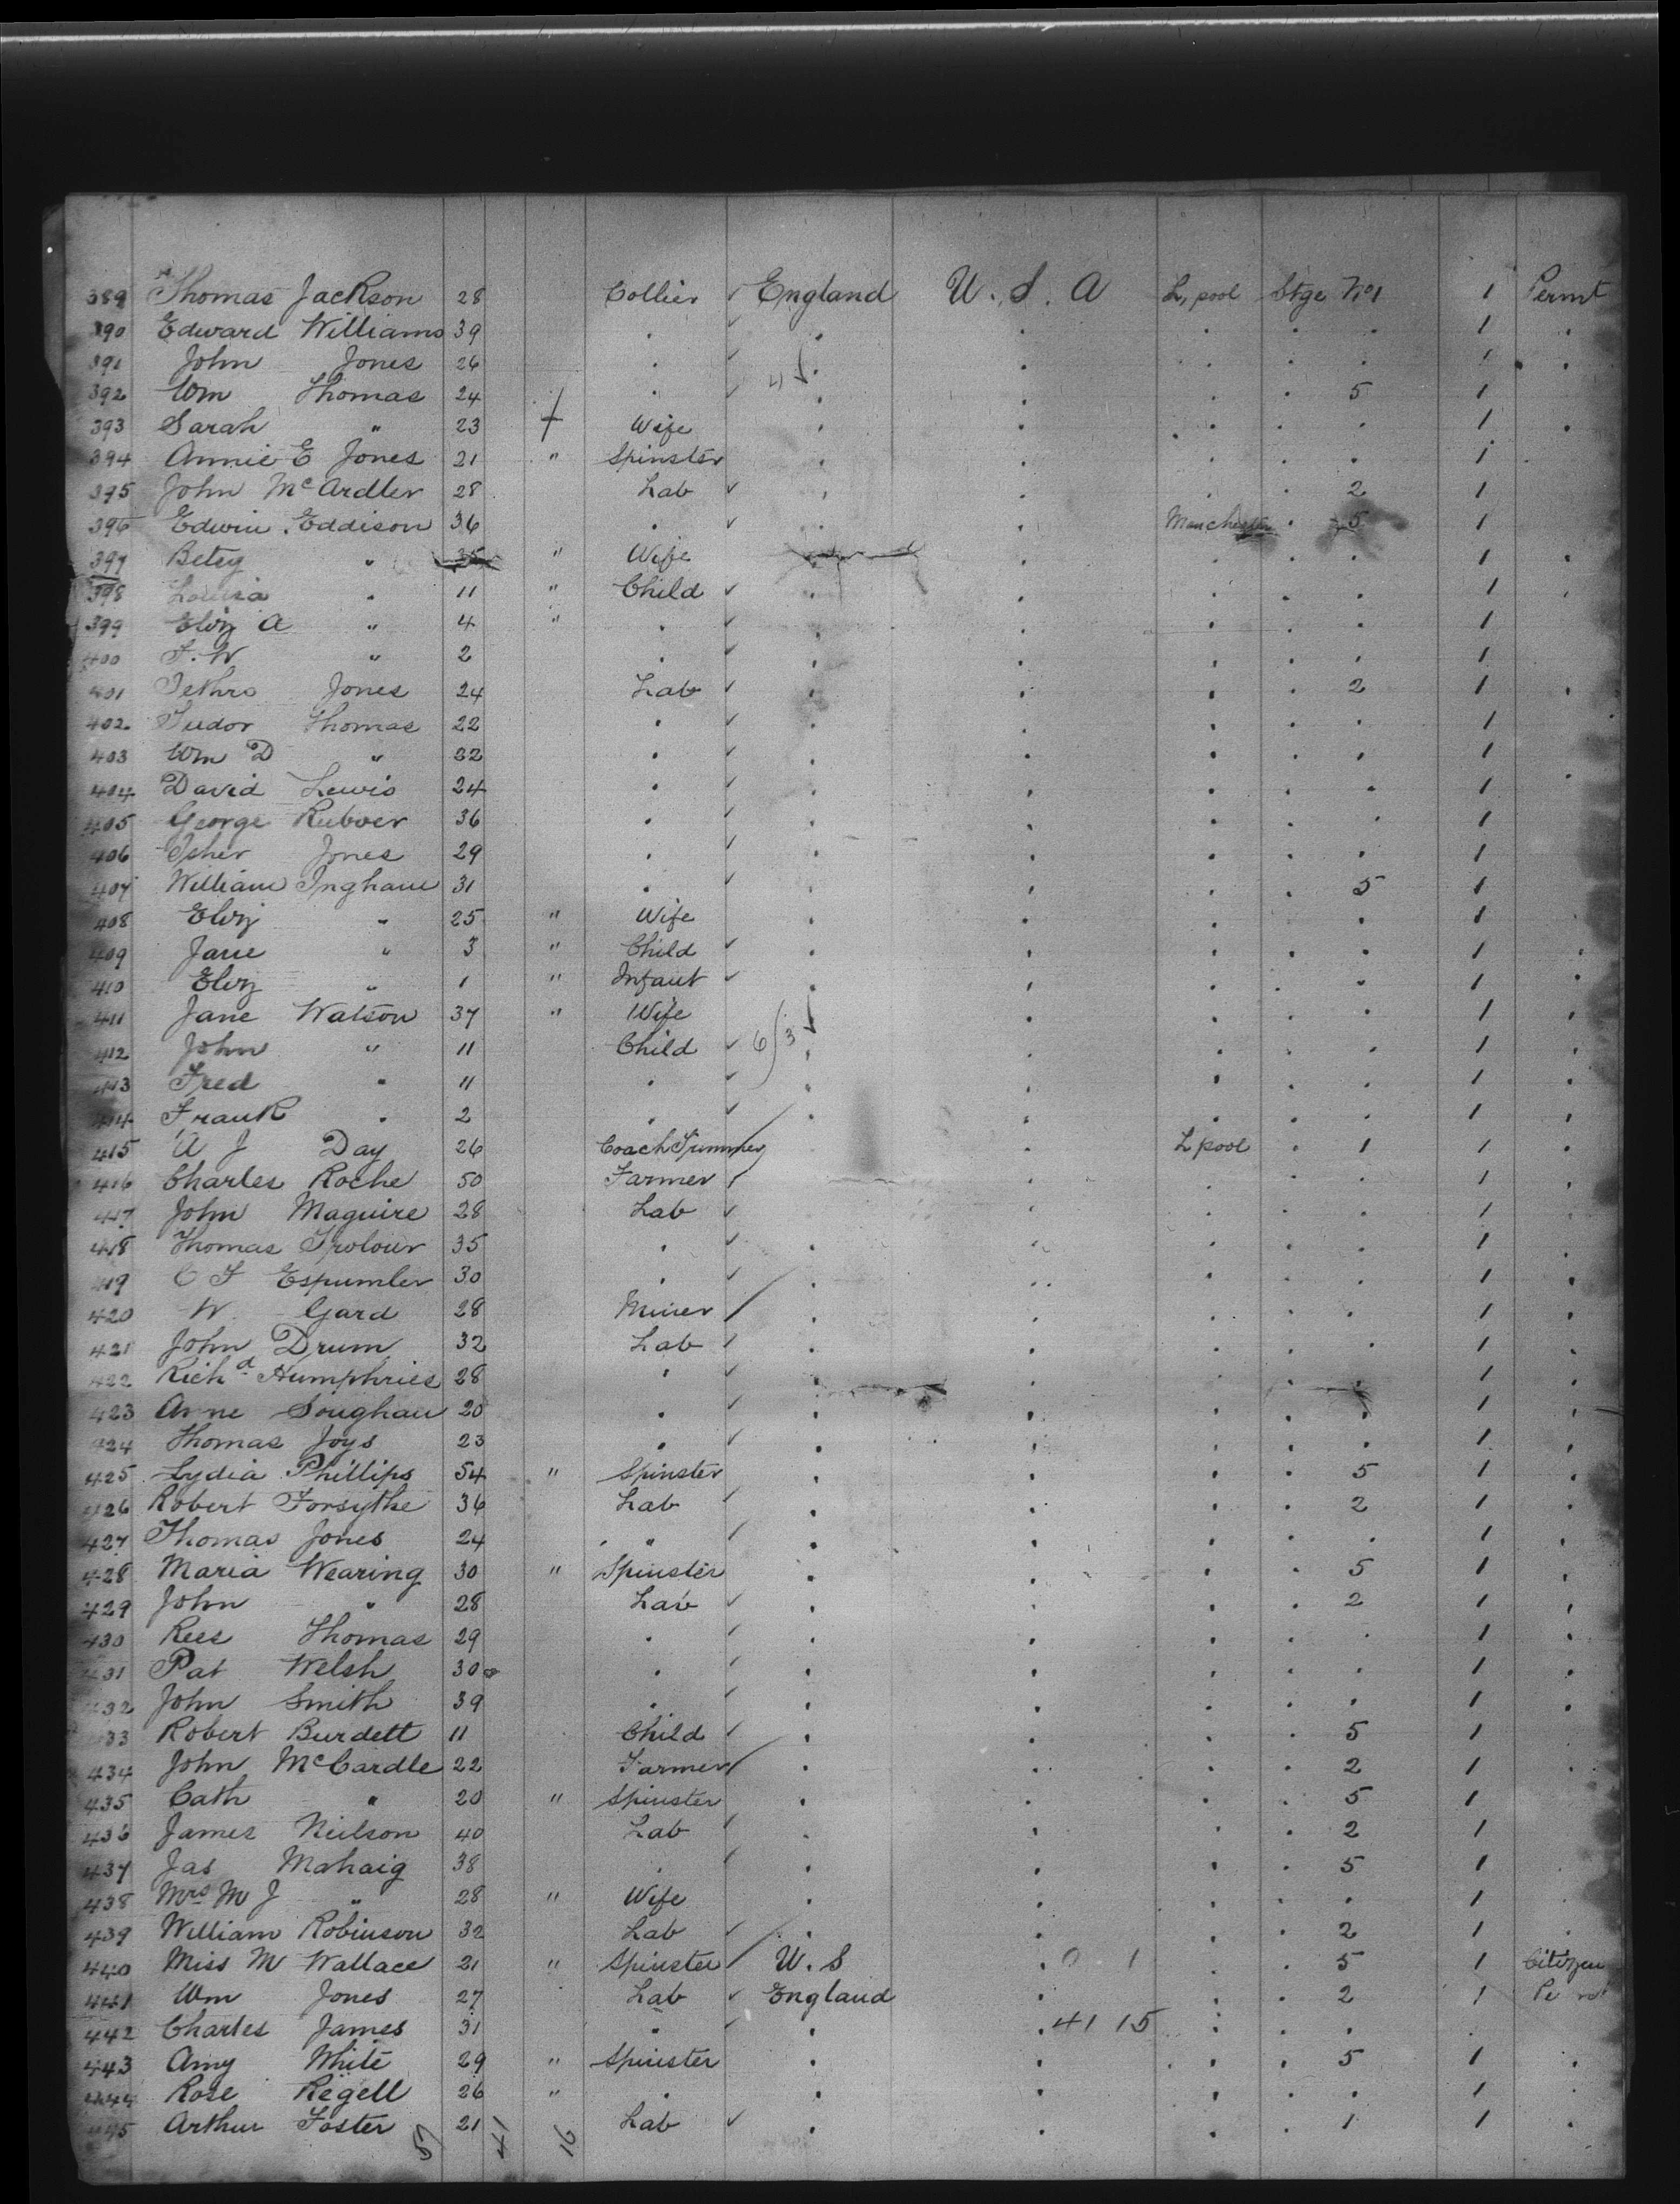 389 Thomas Jackson 28 Collier ✓ England U.S.A L,pool Stge No 1 1 Permt
390 Edward Williams 39 . ✓ . . . . . 1 .
391 John Jones 26 . ✓ 4 . . . . . 1 .
392 Wm Thomas 24 . ✓ . . . . 5 1
393 Sarah " 23 Wife . . . . . 1 .
394 Annie E Jones 21 " Spinster . . . . . 1
395 John McArdler 28 Lab ✓ . . . . 2 1
396 Edwin Eddison 36 . ✓ . . Manchester . 5 1
397 Betsy " 35 " Wife . . . . 1 .
398 Louisa " 11 " Child ✓ . . . . . 1 .
399 Eliz A " 4 " . ✓ . . . . . 1
400 " 2 . ✓ . . . . . 1
401 Jethro Jones 24 Lab ✓ . . . . 2 1 .
402 Tudor Thomas 22 . ✓ . . . . . 1
403 Wm D " 32 . ✓ . . . . . 1
404 David Lewis 24 . ✓ . . . . . 1 .
405 George 36 . ✓ . . . . . 1
406 Jones 29 . ✓ . . . . . 1
407 William Ingham 31 . ✓ . . . . 5 1
408 Eliz " 25 " Wife . . . . . 1
409 Jane " 3 " Child ✓ . . . . . 1 .
410 Eliz " 1 " Infant ✓ . . . . . 1 .
411 Jane Watson 37 " Wife . . . . . 1 .
412 John " 11 Child ✓ 6 3 . . . . . 1 .
413 Fred " 11 . ✓ . . . . . 1 .
414 Frank . 2 . ✓ . . . . . 1 .
415 A J Day 26 Coach Trimmer . L pool . 1 1 .
416 Charles Roche 50 Farmer ✓ . . . . 1 .
417 John Maguire 28 Lab ✓ . . . . 1 .
418 Thomas 35 . ✓ . . . . . 1 .
419 30 . ✓ . . . . . 1 .
420 W Gard 28 Miner ✓ . . . . . 1 .
421 John Drum 32 Lab ✓ . . . . . 1 .
422 Richd Humphries 28 . ✓ . . . . . 1 .
423 20 . ✓ . . . . . 1 .
424 Thomas Joys 23 . ✓ . . . . . 1 .
425 Lydia Phillips 54 " Spinster . . . . 5 1 .
426 Robert Forsythe 36 Lab ✓ . . . . 2 1 .
427 Thomas Jones 24 " ✓ . . . . . 1 .
428 Maria Wearing 30 " Spinster . . . . 5 1 .
429 John " 28 Lab ✓ . . . . 2 1 .
430 Rees Thomas 29 . ✓ . . . . . 1 .
431 Pat Welsh 30 . ✓ . . . . . 1 .
432 John Smith 39 . ✓ . . . . . 1 .
433 Robert Burdett 11 Child ✓ . . . . 5 1
434 John McCardle 22 Farmer ✓ . . . . 2 1 .
435 Cath " 20 " Spinster . . . . 5 1
436 James Neilson 40 Lab ✓ . . . . 2 1
437 Jas Mahaig 38 . ✓ . . . 5 1
438 Mrs M J " 28 " Wife . . . . . 1
439 William Robinson 32 Lab ✓ . . . . 2 1 .
440 Miss M Wallace 21 " Spinster ✓ U.S . 0 1 . . 5 1 Citizen
441 Wm Jones 27 Lab ✓ England . . . 2 1
442 Charles James 31 " ✓ . . 41 15 . . .
443 Amy White 29 " Spinster . . . . 5 1 .
444 Rose Regell 26 " . . . . . . 1 .
445 Arthur Foster 21 Lab ✓ . . . . 1 1 .
57 41 16